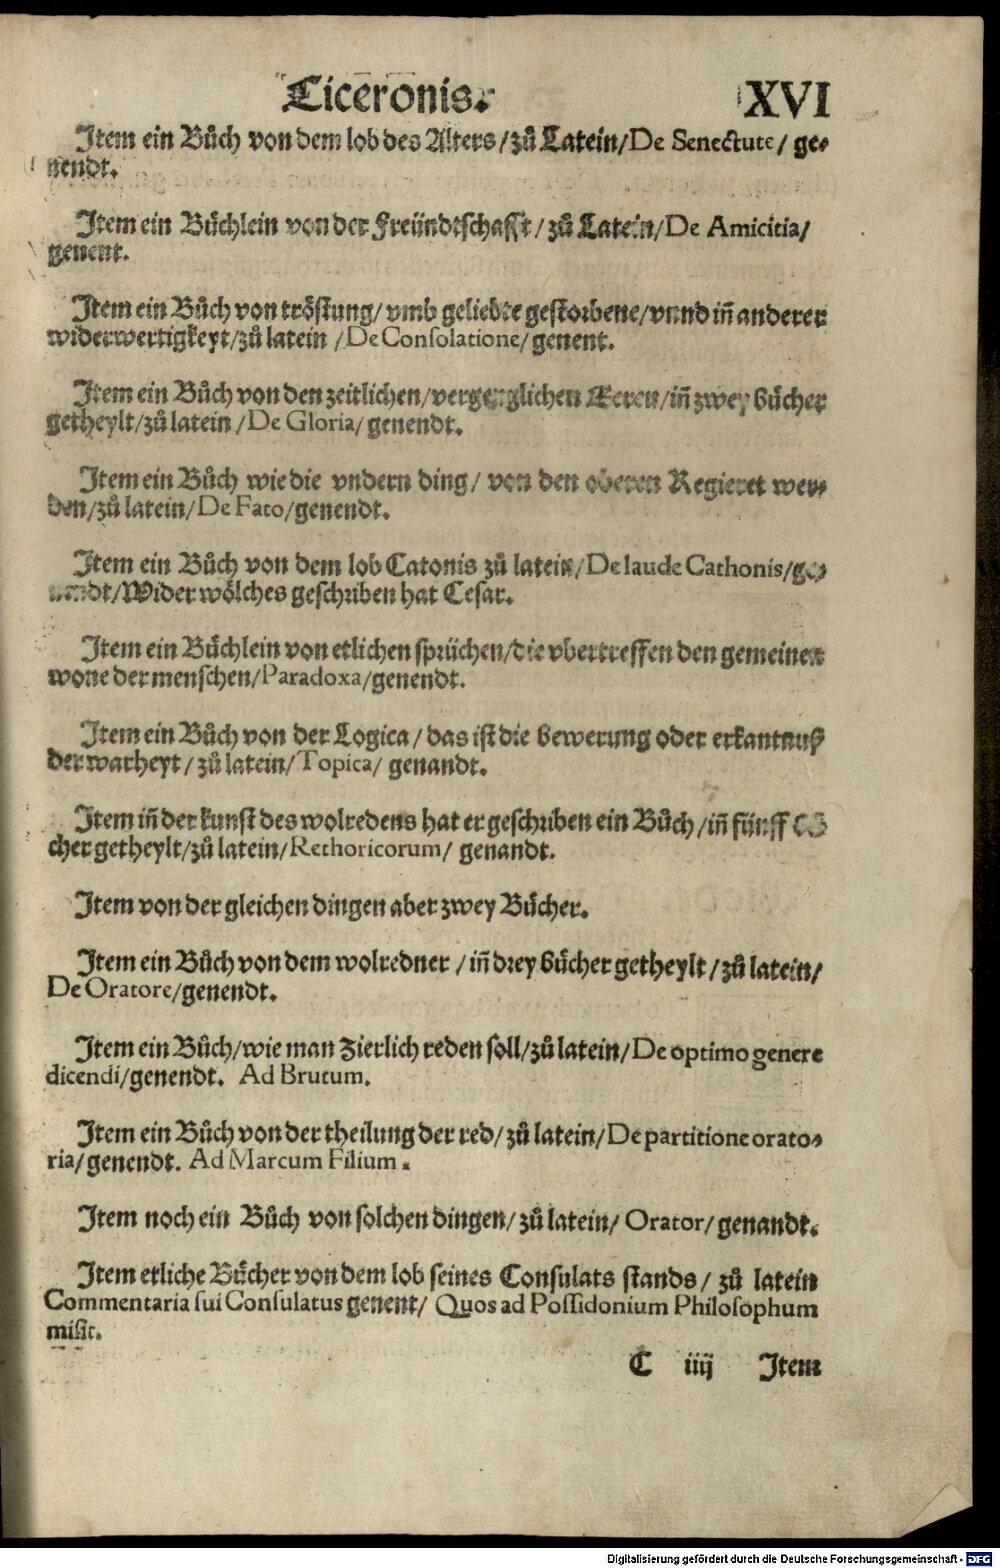 Ciceronis. XVI
Item ein Bůch von dem lob des Alters/zů Latein/De Senectute/ ge-
nendt.
Item ein Bůchlein von der Freündtschafft/zů Latein/De Amicitia/
genent.
Item ein Bůch von tröstung/vmb geliebte gestorbene/vnnd iñ anderer
widerwertigkeyt/zů latein /De Consolatione/genent.
Item ein Bůch von den zeitlichen/vergenglichen Eeren/iñ zwey bücher
getheylt/zů latein /De Gloria/genendt.
Item ein Bůch wie die vndern ding/ von den oberen Regieret wer-
den/zů latein/De Fato/genendt.
Item ein Bůch von dem lob Catonis zů latein/De laude Cathonis/ge-
nendt/Wider wölches geschriben hat Cesar.
Item ein Bůchlein von etlichen sprüchen/die vbertreffen den gemeinen
wone der menschen/Paradoxa/genendt.
Item ein Bůch von der Logica/das ist die bewerung oder erkantnuß
der warheyt/zů latein/Topica/ genandt.
Item iñ der kunst des wolredens hat er geschriben ein Bůch/iñ fünff
cher getheylt/zů latein/Rethoricorum/ genandt.
Item von der gleichen dingen aber zwey Bücher.
Item ein Bůch von dem wolredner /iñ drey bücher getheylt/zů latein/
De Oratore/genendt.
Item ein Bůch/wie man Zierlich reden soll/zů latein/De optimo genere
dicendi/genendt. Ad Brutum.
Item ein Bůch von der theilung der red/zů latein/De partitione orato-
ria/genendt. Ad Marcum Filium.
Item noch ein Bůch von solchen dingen/zů latein/ Orator/genandt.
Item etliche Bücher von dem lob seines Consulats stands/ zů latein
Commentaria sui Consulatus genent/ Quos ad Possidonium Philosophum
misit.
C iiij Item
Digitalisierung gefördert durch die Deutsche Forschungsgemeinschaft - DFG